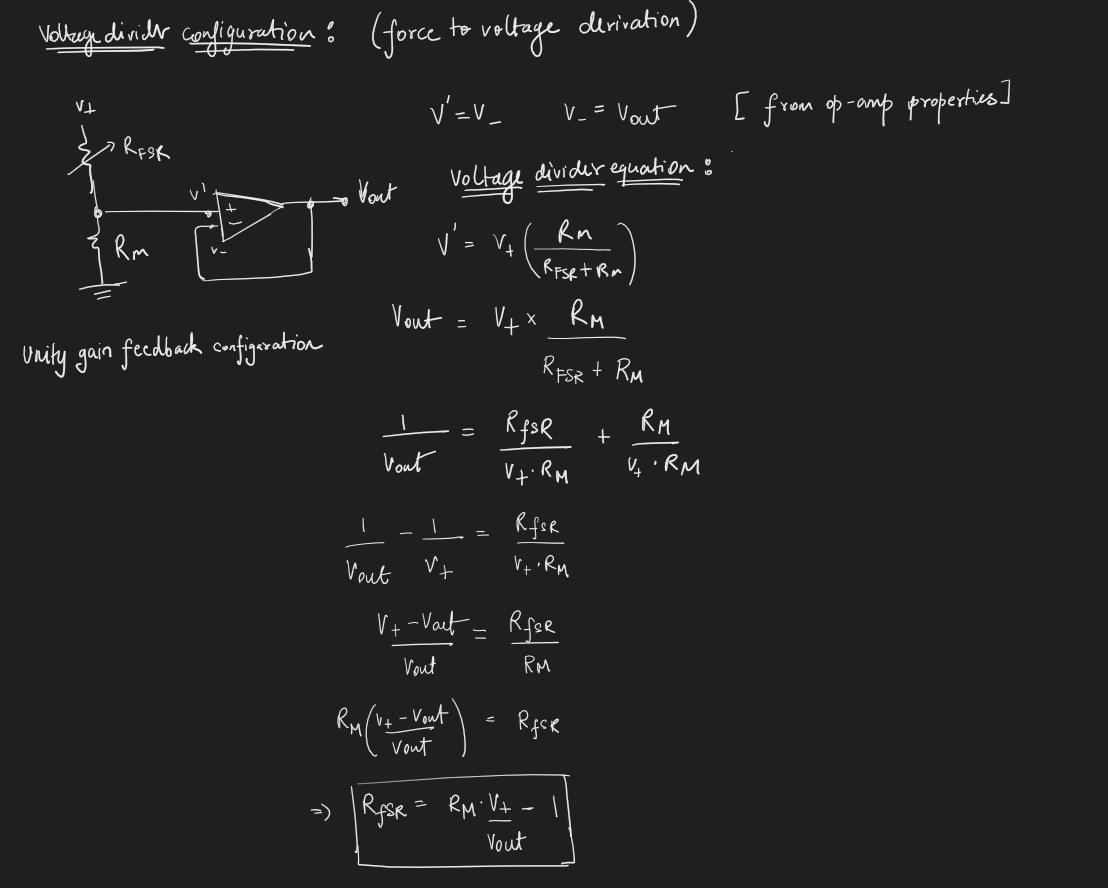 Voltage divider configuration : (force to voltage derivation)
V+
RFSR
V' + Vout
RM V-
Unity gain feedback configuration
V' = V- V- = Vout [from op-amp properties]
Voltage divider equation :
V' = V+ (RM / (RFSR + RM))
Vout = V+ × RM / (RFSR + RM)
1/Vout = RfSR / (V+ · RM) + RM / (V+ · RM)
1/Vout - 1/V+ = RfSR / (V+ · RM)
(V+ - Vout) / Vout = RfSR / RM
RM ((V+ - Vout) / Vout) = RfSR
⇒ RfSR = RM · V+/Vout - 1